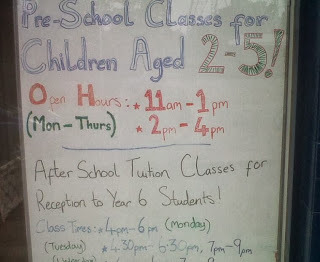 Pre-School Classes for
Children Aged 2-5!
Open Hours: * 11am-1pm
(Mon-Thurs) * 2pm-4pm
After School Tuition Classes for
Reception to Year 6 Students!
Class Times: * 4pm-6pm (Monday)
(Tuesday) * 4.30pm-6:30pm, 7pm-9pm